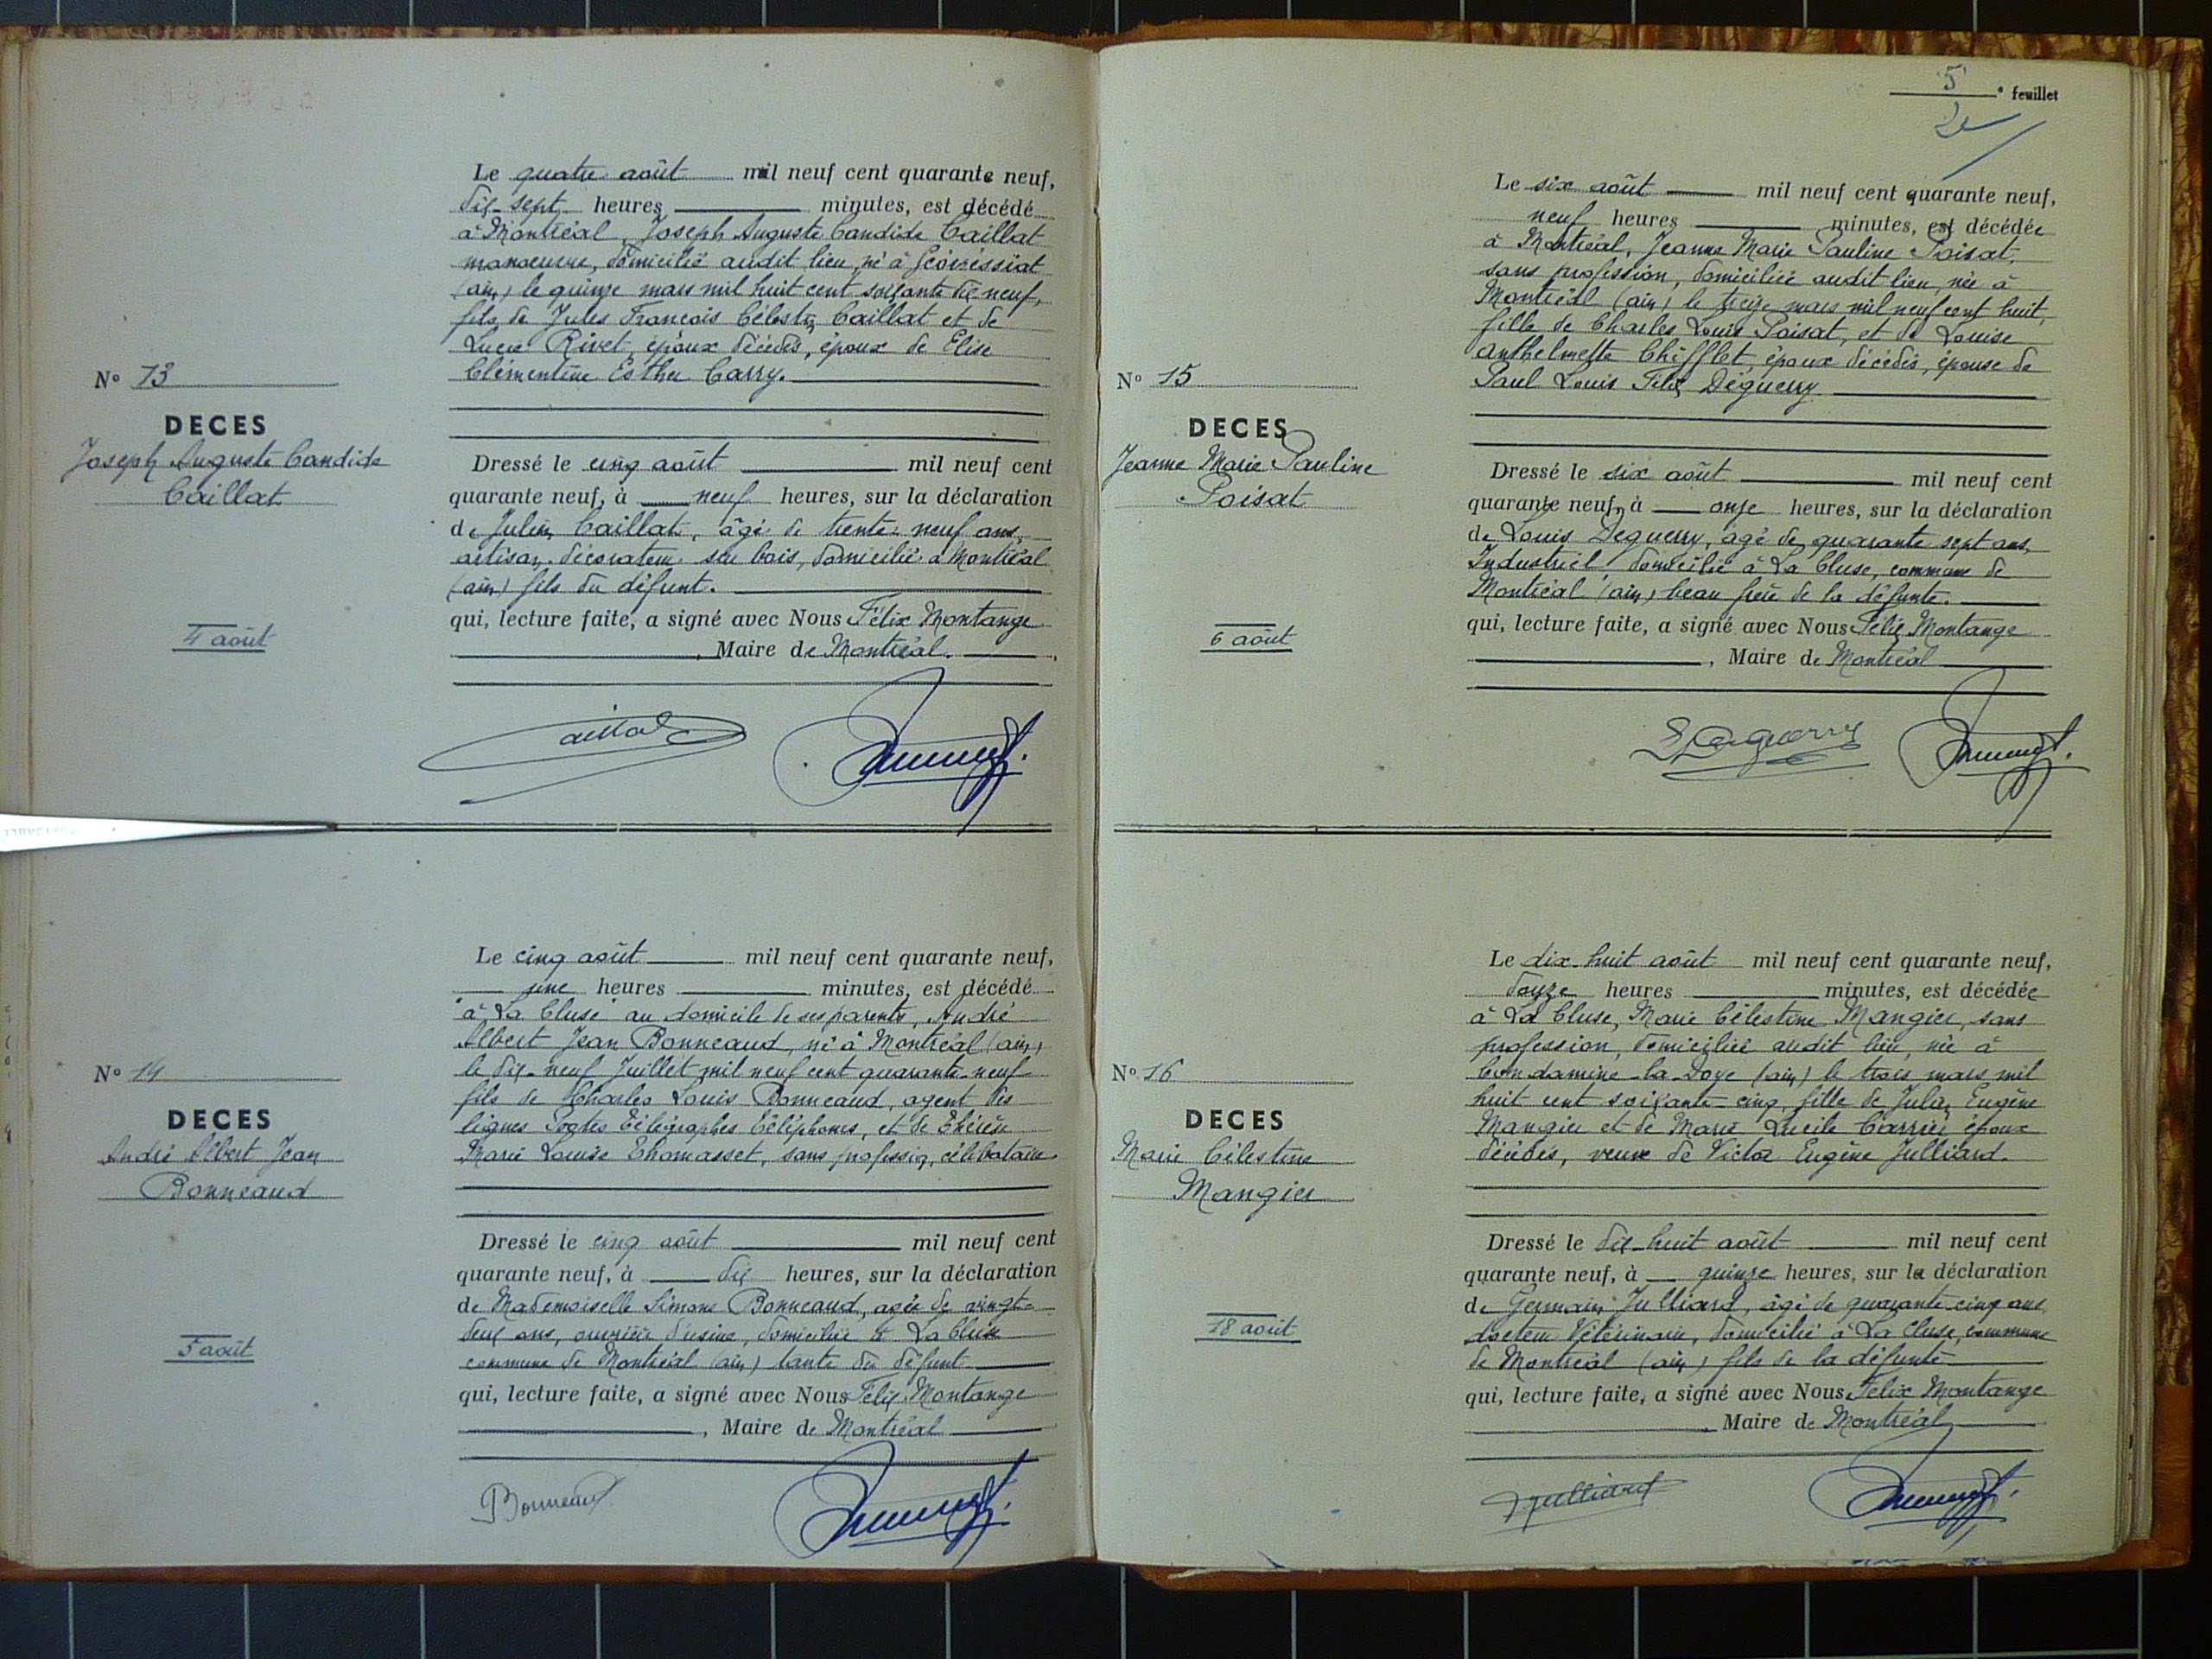 Le quatre août mil neuf cent quarante neuf,
dix-sept heures minutes, est décédé
à Montréal, Joseph Auguste Candide Caillat
manoeuvre, domicilié audit lieu, né à Géovressiat
(Ain) le quinze mars mil huit cent soixante dix neuf,
fils de Jules François Célestin Caillat et de
Lucie Rivet, époux décédés, époux de Elise
Clémentine Esther Carry.
N° 13
DECES
Joseph Auguste Candide
Caillat
4 août
Dressé le cinq août mil neuf cent
quarante neuf, à neuf heures, sur la déclaration
de Julien Caillat, âgé de trente-neuf ans,
artisan décorateur sur bois, domicilié à Montréal
(ain) fils du défunt.
qui, lecture faite, a signé avec Nous Félix Montange
, Maire de Montréal.
Caillat
Le cinq août mil neuf cent quarante neuf,
une heures minutes, est décédé
à La Cluse au domicile de ses parents, André
Albert Jean Bonneaud, né à Montréal (ain)
le dix-neuf Juillet mil neuf cent quarante-neuf
fils de Charles Louis Bonneaud, agent des
lignes Postes Télégraphes Téléphones, et de Thérèse
Marie Louise Thomasset, sans profession, célibataire
N° 14
DECES
André Albert Jean
Bonneaud
5 août
Dressé le cinq août mil neuf cent
quarante neuf, à dix heures, sur la déclaration
de Mademoiselle Simone Bonneaud, agée de vingt-
deux ans, ouvrière d'usine, domiciliée à La Cluse
commune de Montréal (ain) tante du défunt
qui, lecture faite, a signé avec Nous Félix Montange
, Maire de Montréal
Bonneaud
5° feuillet
Le six août mil neuf cent quarante neuf,
neuf heures minutes, est décédée
à Montréal, Jeanne Marie Pauline Poisat,
sans profession, domiciliée audit lieu, née à
Montréal (ain) le treize mars mil neuf cent huit,
fille de Charles Louis Poisat, et de Louise
Anthelmette Chifflet, époux décédés, épouse de
Paul Louis Félix Déguerry
N° 15
DECES
Jeanne Marie Pauline
Poisat
6 août
Dressé le six août mil neuf cent
quarante neuf, à onze heures, sur la déclaration
de Louis Deguerry, âgé de quarante sept ans,
Industriel domicilié à La Cluse, commune de
Montréal (ain) beau frère de la défunte.
qui, lecture faite, a signé avec Nous Félix Montange
, Maire de Montréal
L Deguerry
Le dix-huit août mil neuf cent quarante neuf,
douze heures minutes, est décédée
à La Cluse, Marie Célestine Mangier, sans
profession, domiciliée audit lieu, née à
Condamine-la-Doye (ain) le trois mars mil
huit cent soixante-cinq, fille de Julien Eugène
Mangier et de Marie Lucile Carrier époux
décédés, veuve de Victor Eugène Julliard.
N° 16
DECES
Marie Célestine
Mangier
18 août
Dressé le dix-huit août mil neuf cent
quarante neuf, à quinze heures, sur la déclaration
de Germain Julliard, âgé de quarante-cinq ans
docteur Vétérinaire, domicilié à La Cluse, commune
de Montréal (ain) fils de la défunte
qui, lecture faite, a signé avec Nous Félix Montange
Maire de Montréal
Julliard